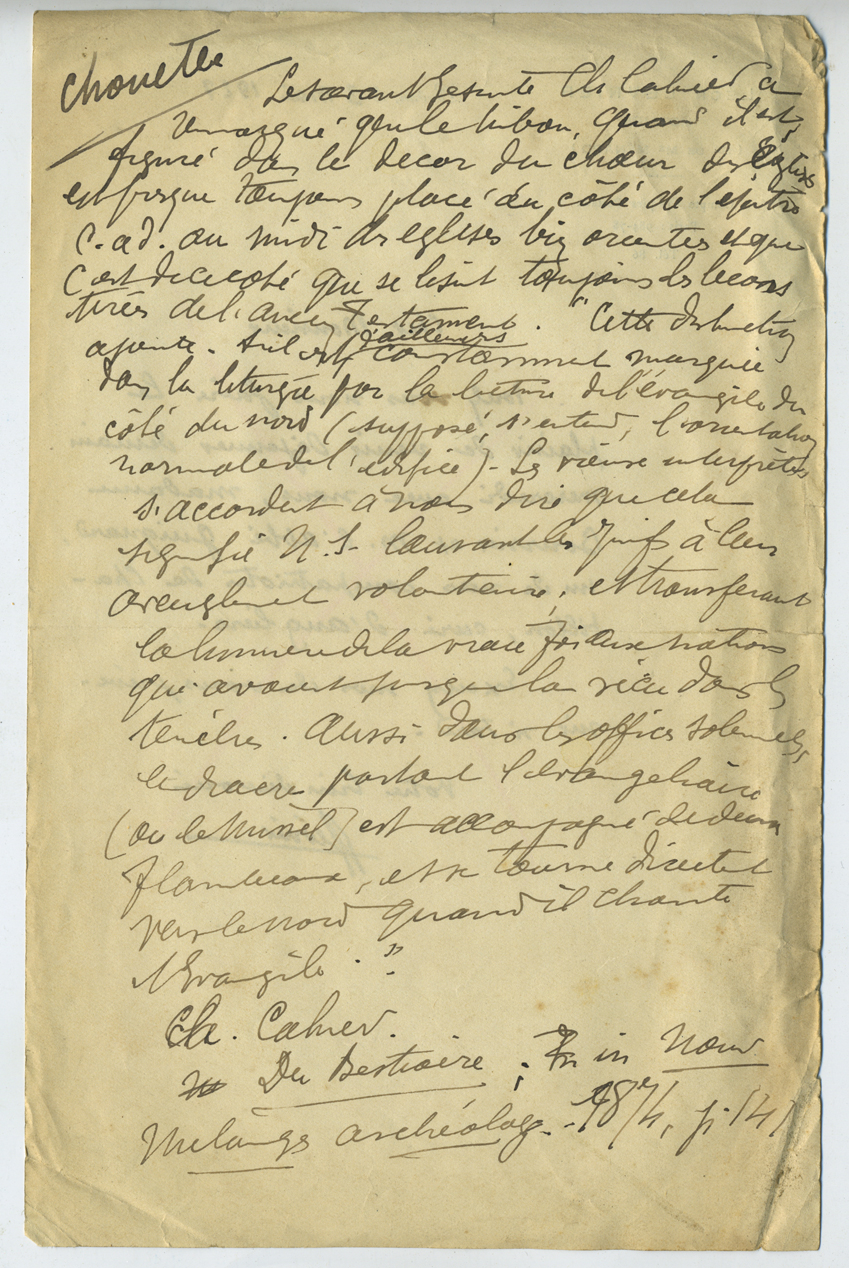 Chouette
Le savant Jésuite Ch. Cahier, a
remarqué que le hibou, quand il est,
figuré dans le décor du chœur des églises
est presque toujours placé du côté de l'épitre
c.a.d. au midi des églises bien orientées et que
c'est de ce côté que se lisent toujours les leçons
tirées de l'ancien Testament. "Cette distinction
ajoute-t-il est d'ailleurs constamment marquée
dans la liturgie par la lecture de l'évangile du
côté du nord (supposé, s'entend, l'orientation
normale de l'édifice) - Les vieux interprètes
s'accordent à nous dire que cela
signifie N.S. laissant les Juifs à leur
aveuglement volontaire, et transférant
la lumière de la vraie foi aux nations
qui avaient jusque là vécu dans les
ténèbres. Aussi dans les offices solennels,
le diacre portant l'évangéliaire
(ou le missel) est accompagné de deux
flambeaux, et se tourne directet
vers le nord quand il chante
l'Evangile."
Ch. Cahier.
Du Bestiaire; in Nouv
Mélanges archéolog. - 1874, p. 141